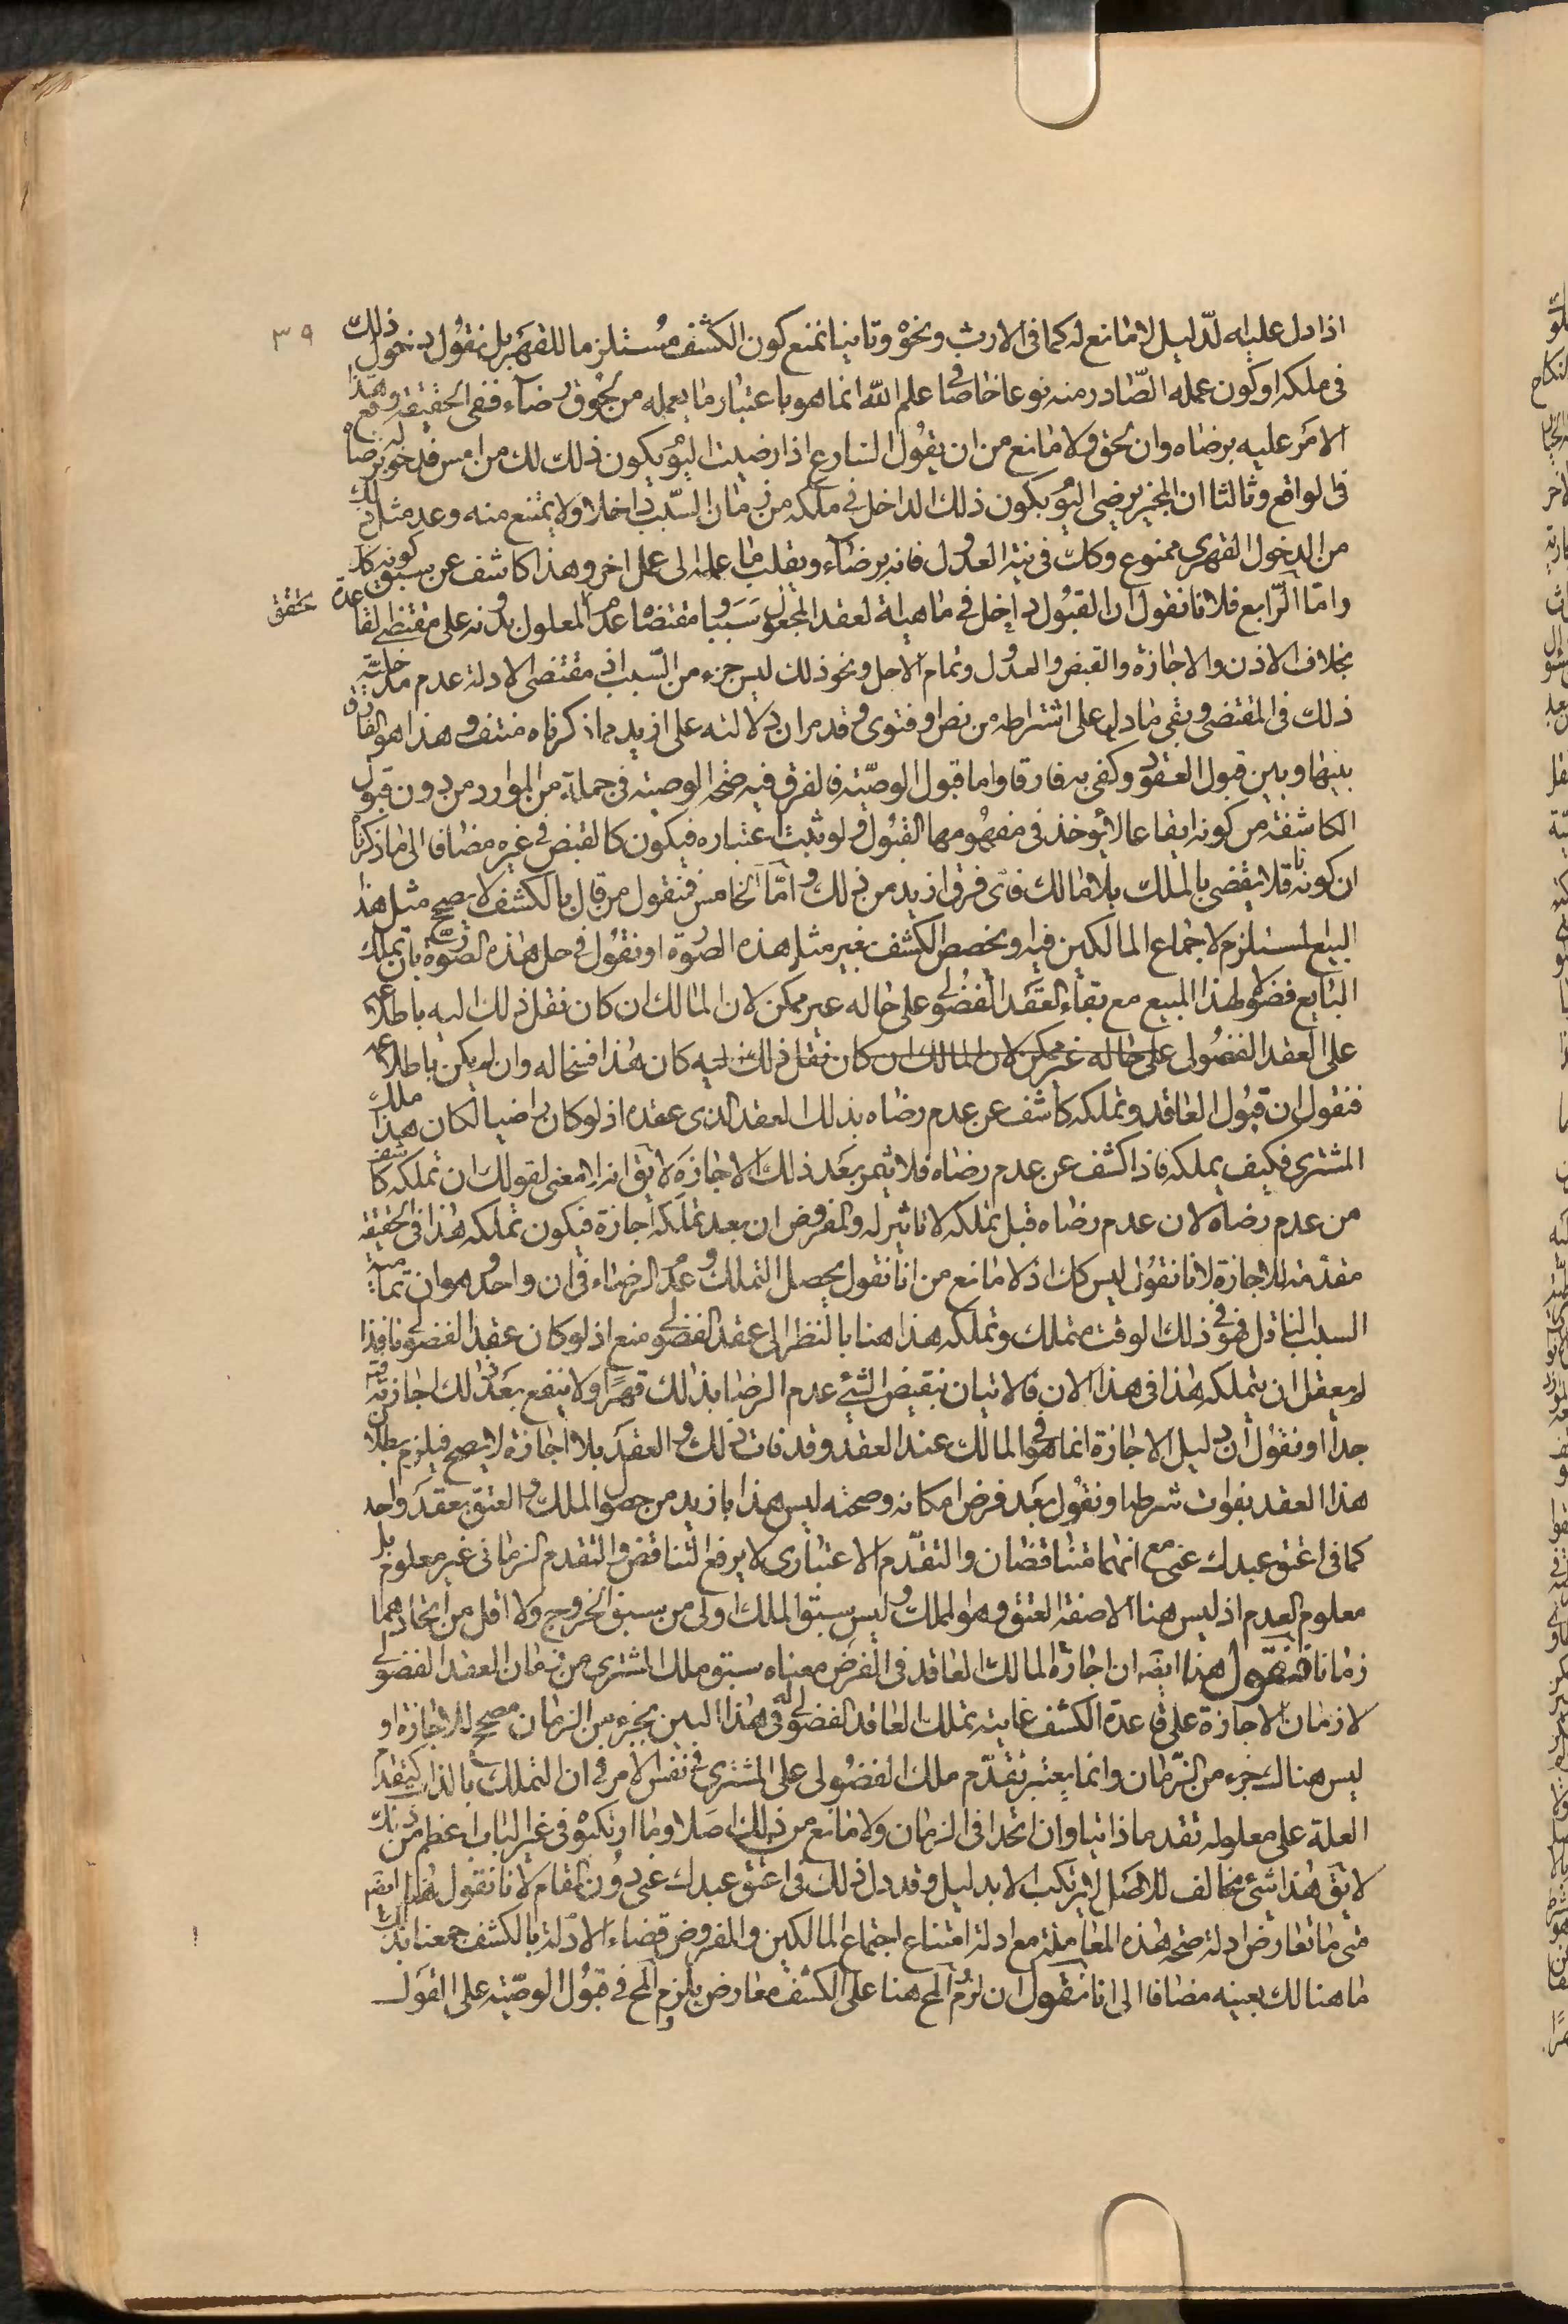 ٣٩
اذا دل عليه الدليل لا مانع له كما فى الارث ونحوه وثانيا نمنع كون الكشف مستلزما للقهر بل نقول دخول ذلك
فى ملكه او كون عمله الصادر منه نوعا خاصا فى علم الله انما هو باعتبار ما يعمله من لحوق رضاه ففى الحقيقة وقع هذا
الامر عليه برضاه وان لحق ولا مانع من ان يقول الشارع اذا رضيت اليوم يكون ذلك لك من امس فدخوله برضاه
فى الواقع وثالثا ان المجيز يرضى اليوم بكون ذلك الداخل فى ملكه من زمان السبب داخلا ولا يمتنع منه وعد مثل ذلك
من الدخول القهرى ممنوع وكك فى نية العدول فانه برضاه ويقلب ما عمله الى عمل اخر وهذا كاشف عن سبق كونه كك
واما الرابع فلانا نقول ان القبول داخل فى ماهية العقد المجعول سببا ومقتضاه عدم المعلول بدونه على مقتضى القاعدة
بخلاف الاذن والاجازة والقبض والعدول وتمام الاجل ونحو ذلك ليس جزء من السبب اذ مقتضى الادلة عدم مدخلية
ذلك فى المقتضى وبقى ما دل على اشتراطه من نص او فتوى وقد مر ان دلالته على ازيد مما ذكرناه منتف وهذا هو الفارق
بينها وبين قبول العقود وكفى به فارقا واما قبول الوصية فالفرق فيه صحة الوصية فى جملة من الموارد من دون قبول
الكاشفة من كونه ايقاعا لا يؤخذ فى مفهومها القبول ولو ثبت اعتباره فيكون كالقبض فى غيره مضافا الى ما ذكرناه
ان كونه ناقلا يقضى بالملك بلا مالك فاى فرق ازيد من ذلك واما الخامس فنقول من قال بالكشف لا يصحح مثل هذا
البيع المستلزم لاجماع المالكين فيه ويخصص الكشف بغير مثل هذه الصورة او نقول فى حل هذه الصورة بان تملك
البايع فضولا لهذا المبيع مع بقاء العقد الفضولى على حاله غير ممكن لان المالك ان كان نقل ذلك اليه باطلا
على العقد الفضولى على حاله غير ممكن لان المالك ان كان نقل ذلك اليه كان هذا فسخا له وان لم يكن باطلا
فنقول ان قبول العاقد وتملكه كاشف عن عدم رضاه بذلك العقد الذى عقده اذ لو كان راضيا لكان هذا ملك
المشترى فكيف يملكه فاذا كشف عن عدم رضاه فلا يثمر بعد ذلك الاجازة لا يق انه لا معنى لقولك ان تملكه كاشف
من عدم رضاه لان عدم رضاه قبل تملكه لا تاثير له والمفروض ان بعد تملكه اجازة فيكون تملكه هذا فى الحقيقة
مقدمة للاجازة لانا نقول ليس كك اذ لا مانع من انا نقول يحصل التملك وعدم الرضاء فى ان واحد وهو ان تمامية
السبب الناقل فهو فى ذلك الوقت متملك وتملكه هذا هنا بالنظر الى عقد الفضولى منع اذ لو كان عقد الفضولى نافذا
لم يعقل ان يتملكه هذا فى هذا الان فالاتيان بنقيض الشئ عدم الرضا بذلك قهرا ولا ينفع بعد ذلك اجازته
جدا او نقول ان دليل الاجازة انما هو فى المالك عند العقد وقد فات ذلك والعقد بلا اجازة لا يصح فيلزم بطلان
هذا العقد بفوات شرطه او نقول بعد فرض امكانه وصحته ليس هذا بازيد من حصول الملك والعتق بعقد واحد
كما فى اعتق عبدك عنى مع انهما متناقضان والتقدم الاعتبارى لا يرفع التناقض والتقدم الزمانى غير معلوم بل
معلوم العدم اذ ليس هنا الا صفة العتق وهو الملك وليس سبق الملك اولى من سبق الخروج ولا اقل من اتحادهما
زمانا فنقول هنا ايضه ان اجازة المالك العاقد فى الفرض معناه سبق ملك المشترى من زمان العقد الفضولى
لا زمان الاجازة على قاعدة الكشف غايته تملك العاقد الفضولى له فى هذا البين بجزء من الزمان مصحح للاجازة او
ليس هنالك جزء من الزمان وانما يعتبر تقدم ملك الفضولى على المشترى فى نفس الامر فى ان التملك بالذات كتقدم
العلة على معلوله تقدما ذاتيا وان اتحدا فى الزمان ولا مانع من ذلك اصلا وما ارتكبوه فى غير الباب اعظم من ذلك
لا يق هذا شئ مخالف للاصل لا يرتكب الا بدليل وقد دل ذلك فى اعتق عبدك عنى دون المقام لانا نقول هنا ايضه
متى ما تعارض ادلة صحة هذه المعاملة مع ادلة امتناع اجتماع المالكين والمفروض قضاء الادلة بالكشف جمعنا بذلك
ما هنالك بعينه مضافا الى انا نقول ان لزوم المح هنا على الكشف معارض بلزوم المح فى قبول الوصية على القول